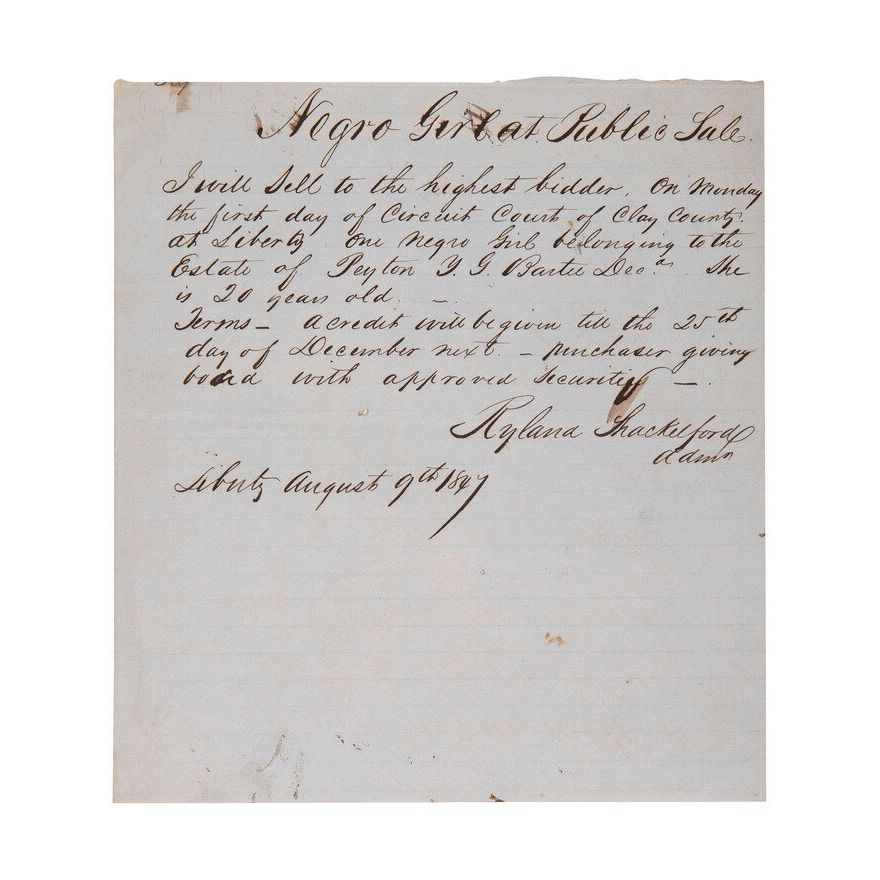 Negro Girl at Public Sale.
I will Sell to the highest bidder, on Monday
the first day of Circuit Court of Clay County.
at Liberty one Negro Girl belonging to the
Estate of Peyton Y. G. Bartee Decd. She
is 20 years old. —.
Terms — a credit will be given till the 25th
day of December next. — purchaser giving
bond with approved Securities — .
Ryland Shackelford
adm
Liberty August 9th 1847